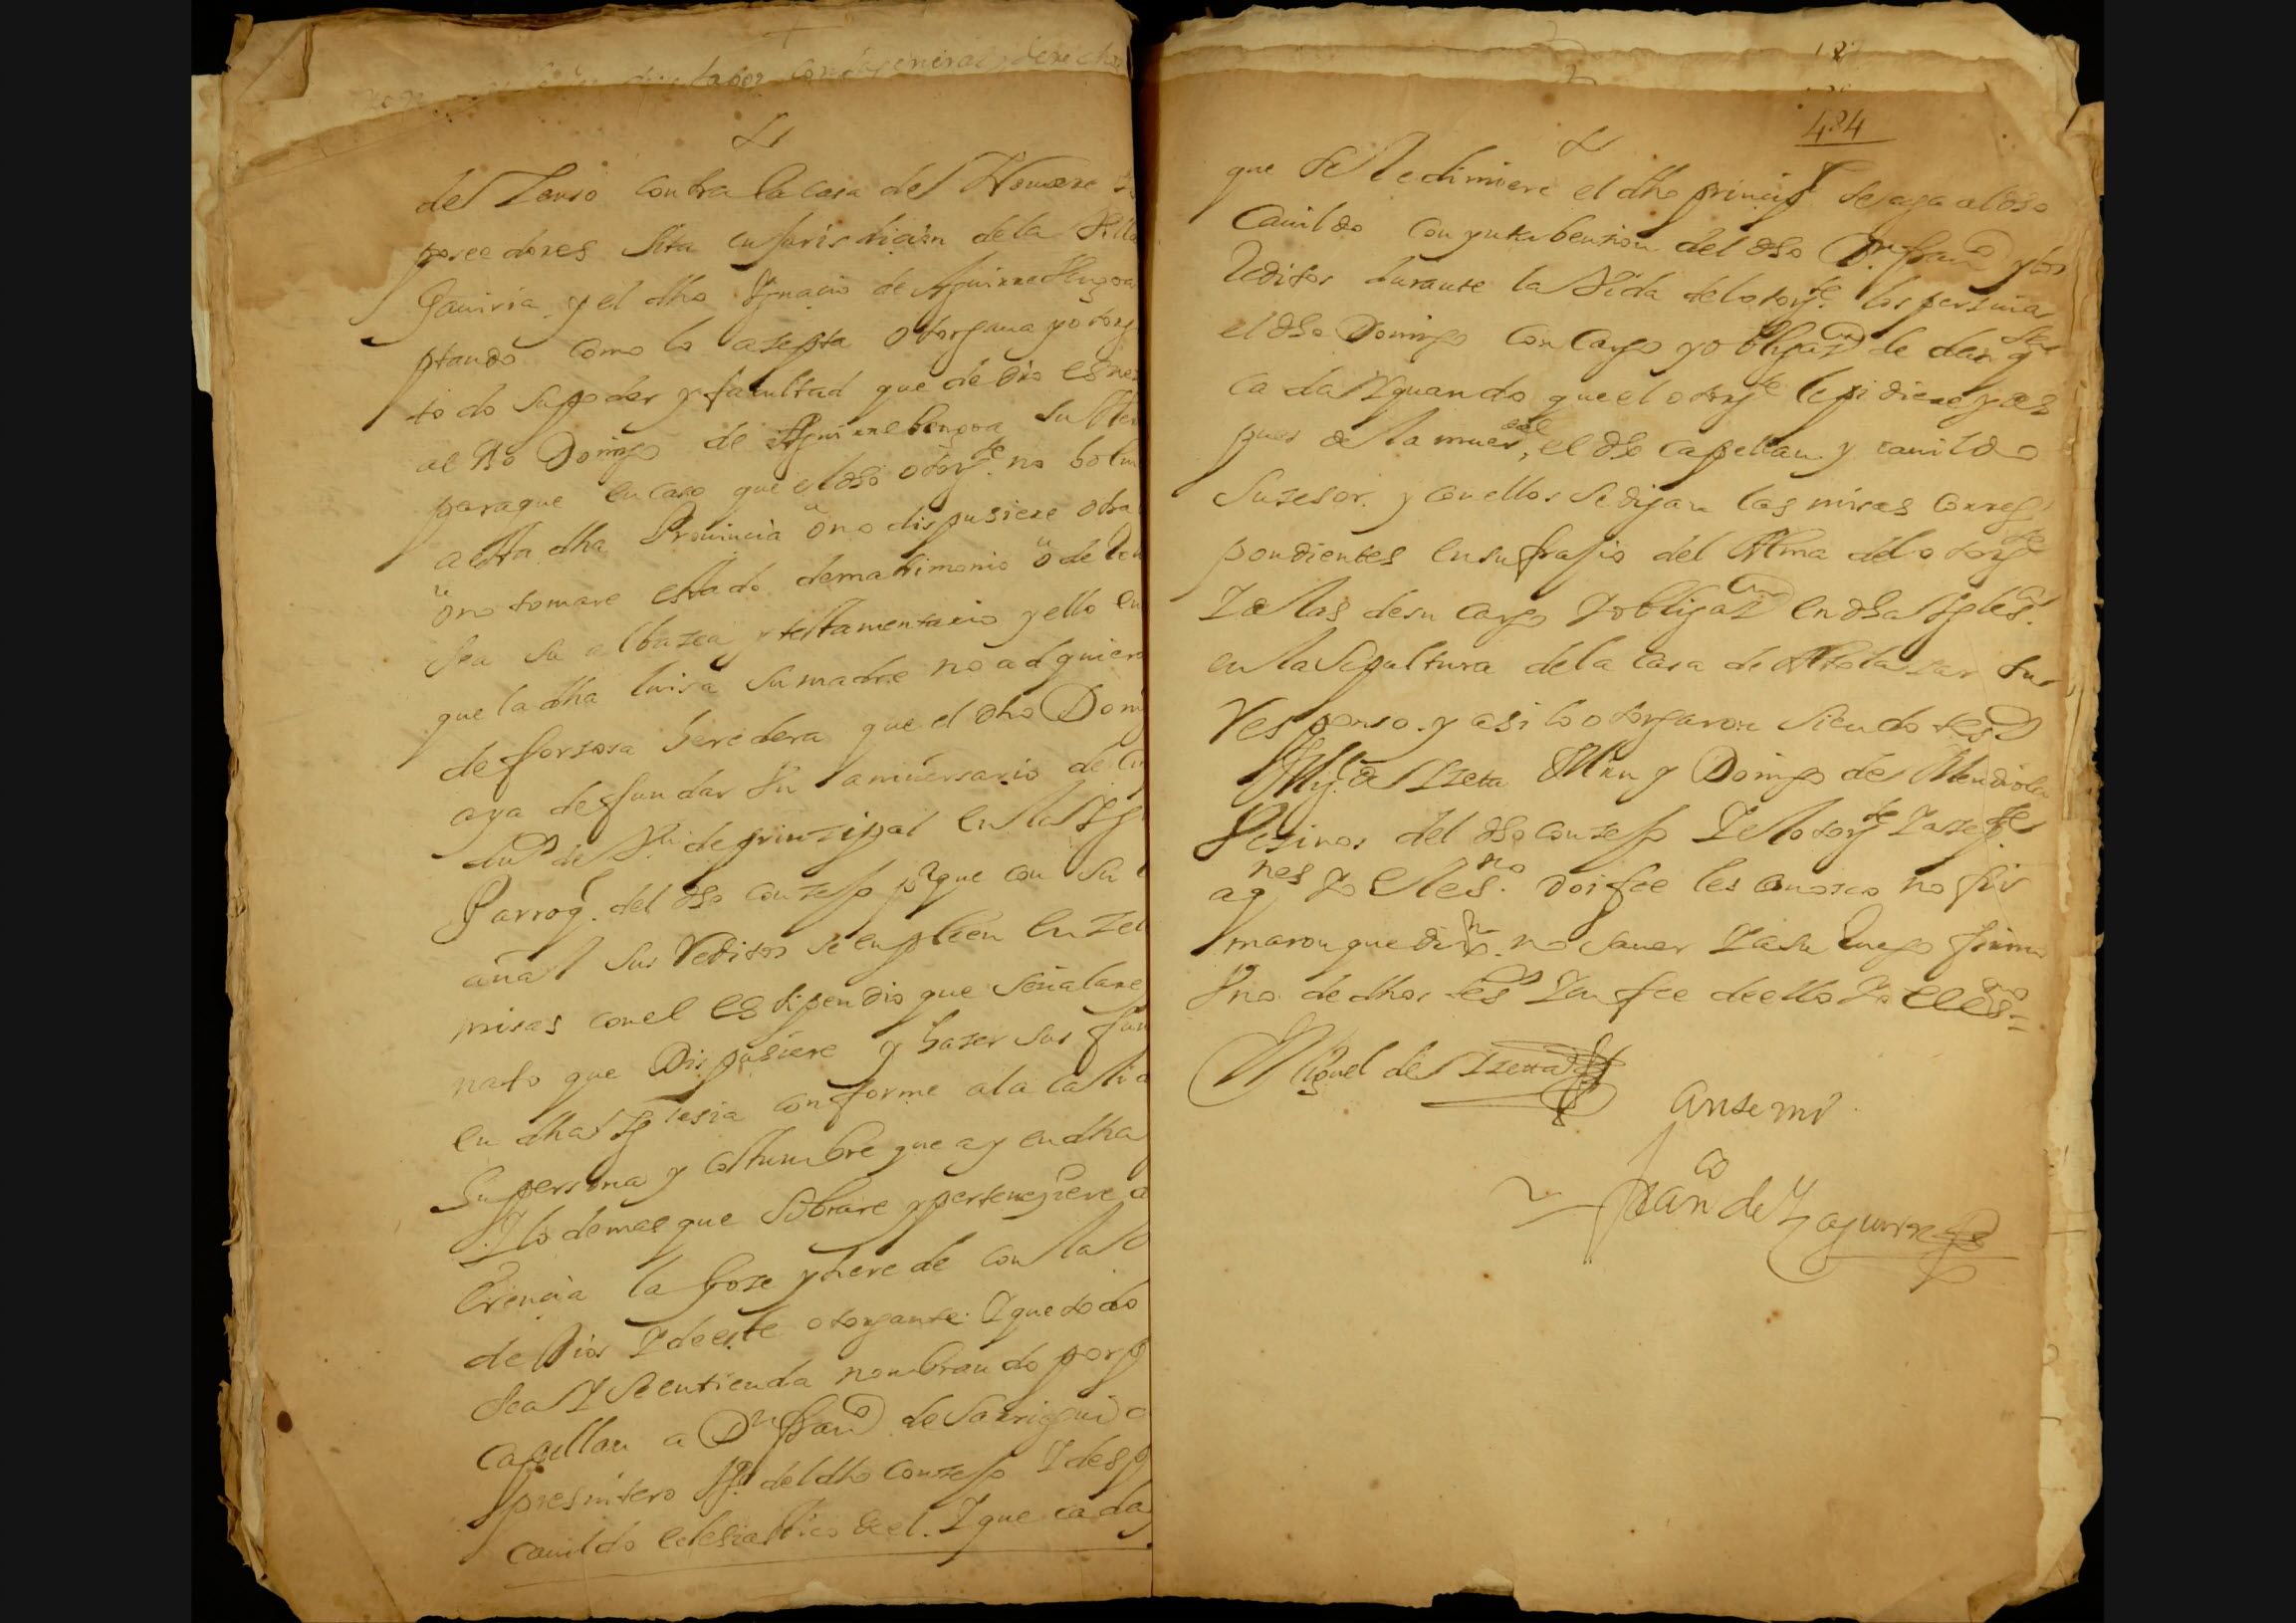 del Zenso contra la casa del
poseedores sita en jurisdicion de la Villa
Gaviria y el dho Ygnacio de Aguirrebengoa
ptando como lo azepta otorgaua y otorg
todo su poder y facultad que de dro es nez
al dho Domgo de Aguirrebengoa su
para que en caso que el dho otorgte no bolui
a esta dha Prouincia o no dispusiere otra
o no tomare estado de matrimonio o de
sea su albazea y testamentario y ello en
que la dha luisa su madre no adquiera
de forsosa heredera que el dho Dom
aya de fundar Vn aniuersario de
dus de Vn de prinzipal en la Yg
Parroql. del dho conzejo pa que con su
añal sus Reditos se enpleen en zel
misas con el estipendio que señalare
nato que Dispusiere y hazer sus fun
en dha Yglesia conforme a la calid
su persona y costumbre que ay en dha
Y lo demas que sobrare y perteneziere a
erencia la goze y herede con la
de Dios Y de este otorgante Y que todo
sea Y se entienda nombrando por p
capellan a Dn franco de Sarriegui
presuitero del dho conzejo Y desp
cauildo eclesiastico de el. Y que cada
484
que se Redimiere el dho principl se aga al dho
Cauildo con ynterbenzion del dho Dn franco y los
Reditos durante la Vida del otorgte los perziua
el dho Domingo con cargo y obligazn de dar
cada Y quando que el otorgte le pidiere y des
pues de la muerte, el dho capellan y cauildo
suzesor. y con ellos se digan las misas corres
pondientes en sufrajio del Alma del otorgte
Y de las de su cargo Y obligazn en dha Yglesa.
en la sepultura de la casa de con su
Responso. y asi lo otorgaron siendo tesos
Migl de Yzeta y Domingo de Mendiola
Vezinos del dho conzejo Y el otorgte Y azepte
a qnes Yo el esno. doi fee les conosco no fir
maron que dixn. no sauer Y a su Ruego firmo
Vno de dhos tesos Y en fee de ello Yo el esno =
Miguel de Yzeta
Ante mi
Franco de Yzaguirre